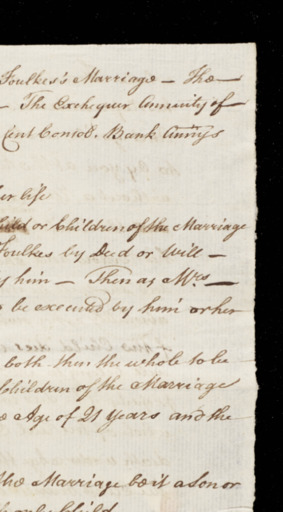 Foulkes's Marriage — The —
— The Exchequer Annuity of —
Cent Consol. Bank Annuys
her life
Child or Children of the Marriage
Foulkes by Deed or Will —
by him — Then as Mrs —
be executed by him or her
both then the whole to be
Children of the Marriage
Age of 21 years and the
the Marriage be it a Son or
Child